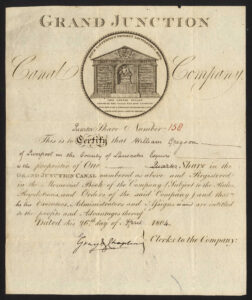 GRAND JUNCTION
Canal Company.
Quarter Share Number 150
This is to Certify that William Gregson
of Liverpool in the County of Lancaster Esquire
is the proprietor of One Quarter Share in the
GRAND JUNCTION CANAL numbered as above and Registered
in the Memorial Book of the Company (Subject to the Rules,
Regulations, and Orders of the said Company) and that
his Executors, Administrators and Assigns are entitled
to the profits and Advantages thereof
Dated this 26th day of April 1804.
Clerks to the Company